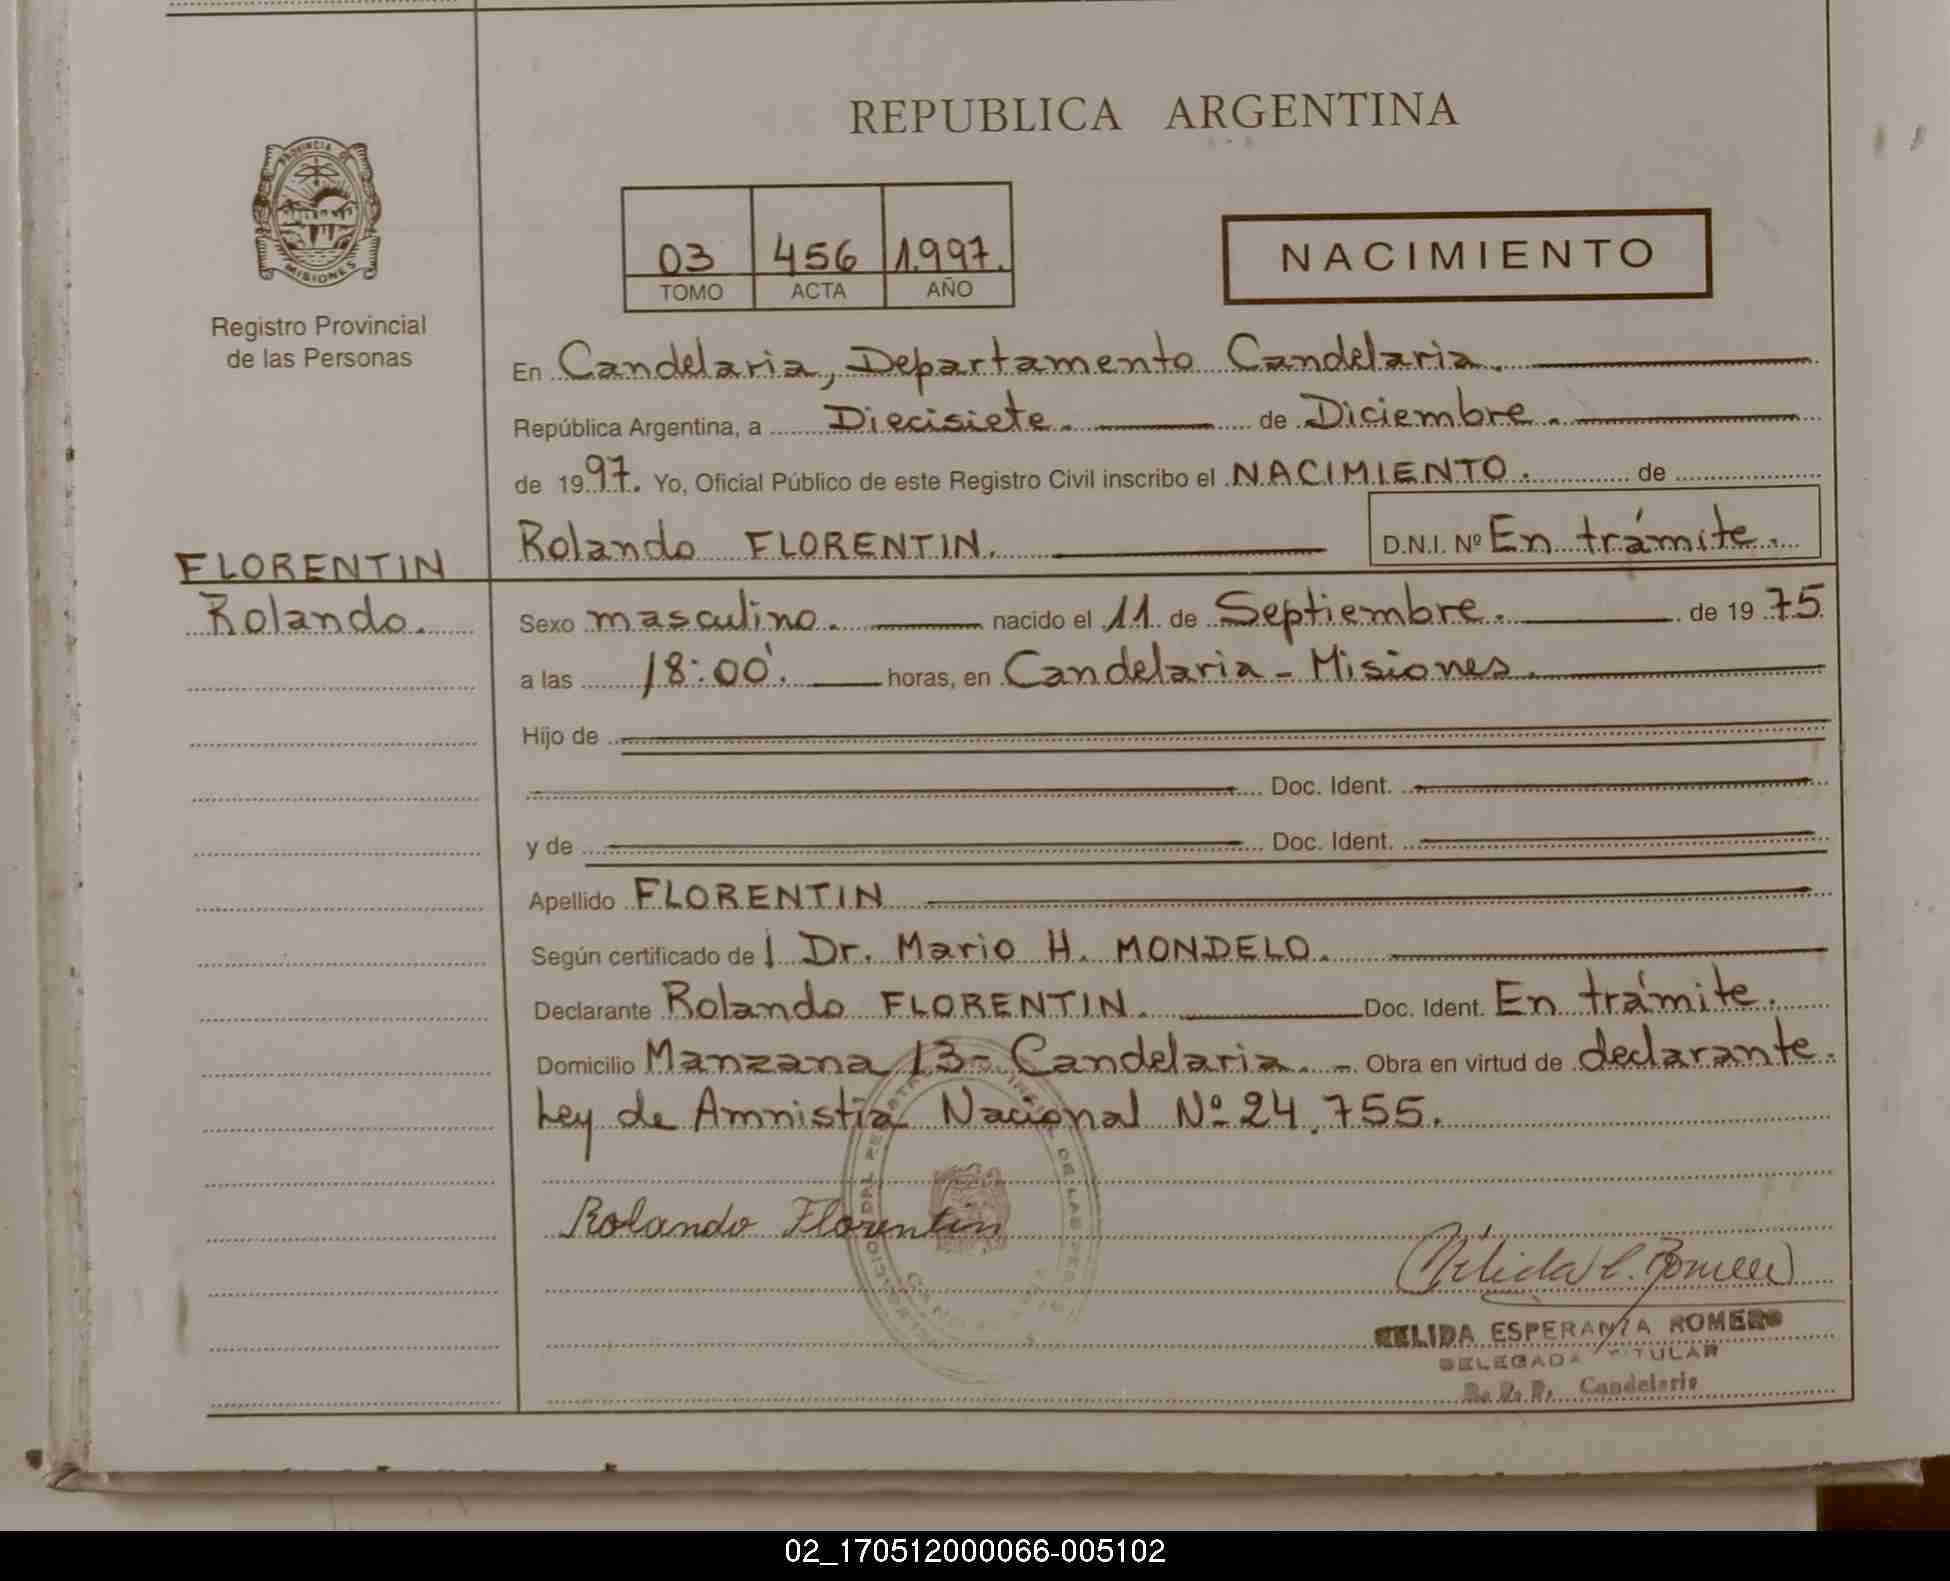 REPUBLICA ARGENTINA
PROVINCIA DE
MISIONES
Registro Provincial
de las Personas
03 456 1.997.
TOMO ACTA AÑO
NACIMIENTO
En Candelaria, Departamento Candelaria.
República Argentina, a Diecisiete. de Diciembre.
de 1997. Yo, Oficial Público de este Registro Civil inscribo el NACIMIENTO. de
Rolando FLORENTIN. D.N.I. Nº En trámite.
FLORENTIN
Rolando.
Sexo masculino. nacido el 11 de Septiembre. de 1975
a las 18:00'. horas, en Candelaria - Misiones.
Hijo de
Doc. Ident.
y de Doc. Ident.
Apellido FLORENTIN
Según certificado de l Dr. Mario H. MONDELO.
Declarante Rolando FLORENTIN. Doc. Ident. En trámite.
Domicilio Manzana 13- Candelaria. -. Obra en virtud de declarante.
Ley de Amnistía Nacional Nº 24.755.
Rolando Florentin
DE LAS
NELIDA ESPERANZA ROMERO
DELEGADA TITULAR
R. P. P. Candelaria
02_170512000066-005102